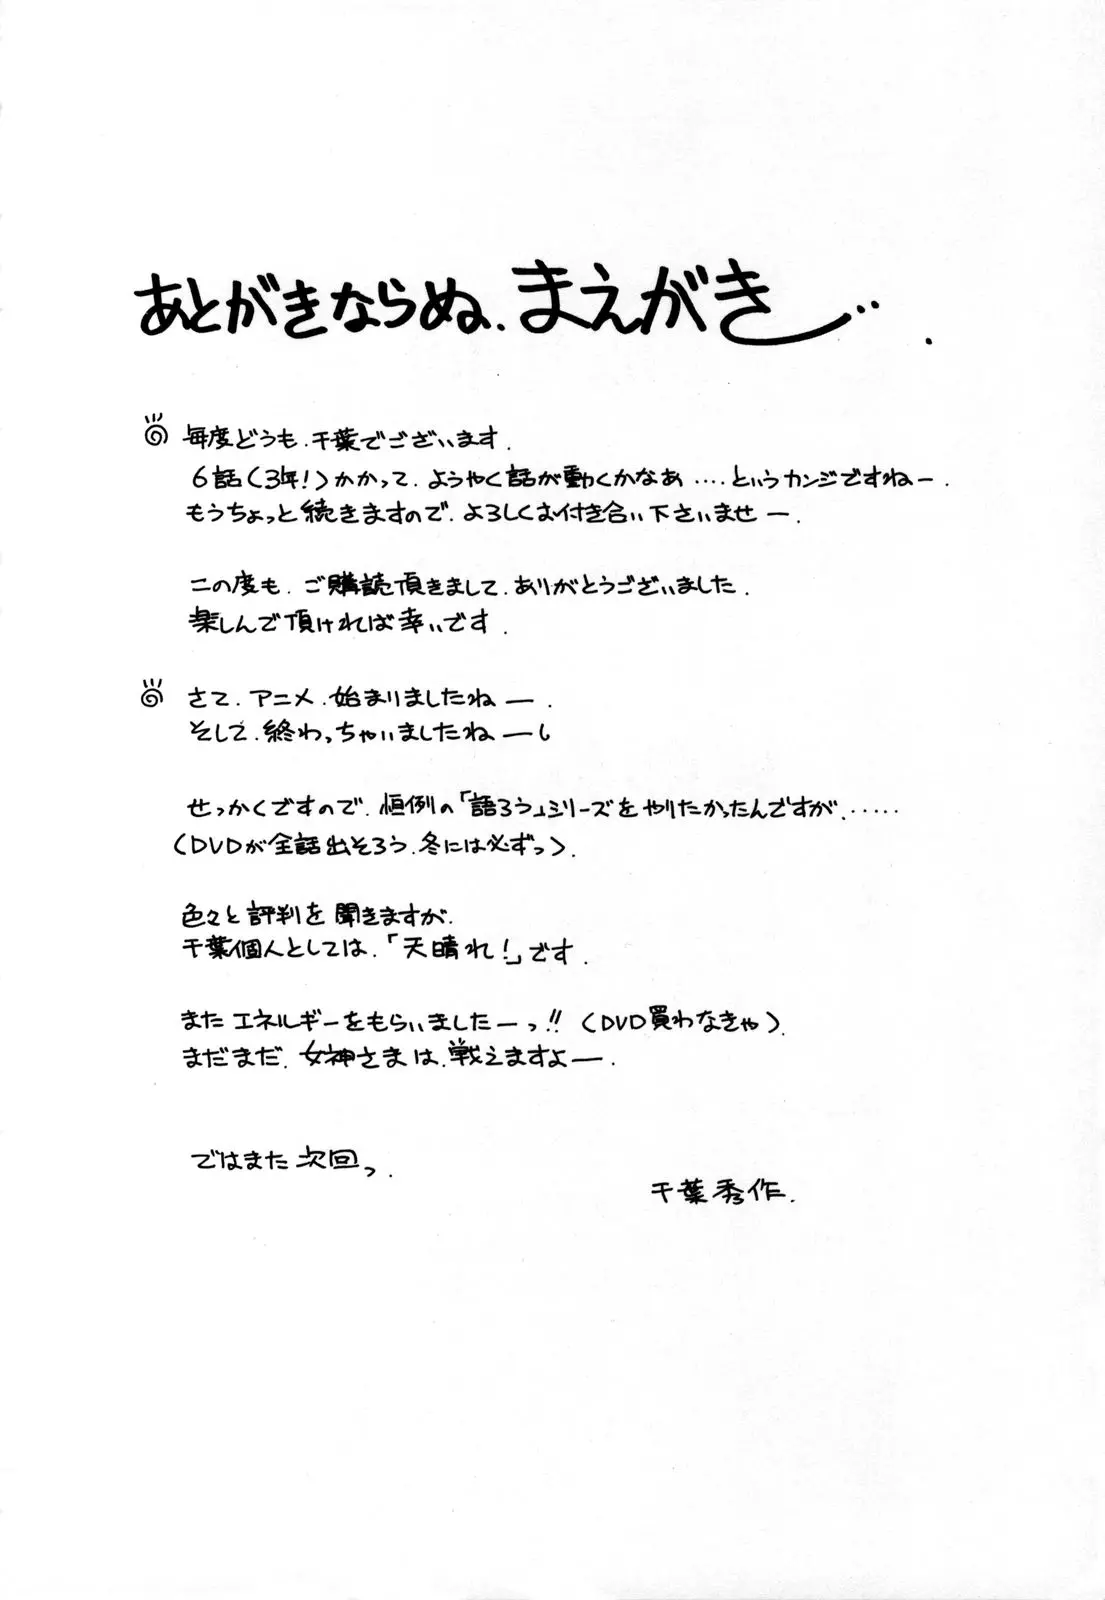 あとがきならぬ、まえがき…
毎度どうも、千葉でございます.
6話(3年!)かかって、ようやく話が動くかなあ‥‥というカンジですねー.
もうちょっと続きますので、よろしくお付き合い下さいませー.
この度も、ご購読頂きまして、ありがとうございました.
楽しんで頂ければ幸いです.
さて、アニメ、始まりましたねー.
そして、終わっちゃいましたねー.
せっかくですので、恒例の「語ろう」シリーズをやりたかったんですが.‥‥‥
(DVDが全話出そろう、冬には必ずっ).
色々と評判を聞きますが、
千葉個人としては、「天晴れ!」です.
またエネルギーをもらいましたーっ!!(DVD買わなきゃ).
まだまだ、女神さまは、戦えますよー.
ではまた次回っ.
千葉秀作.